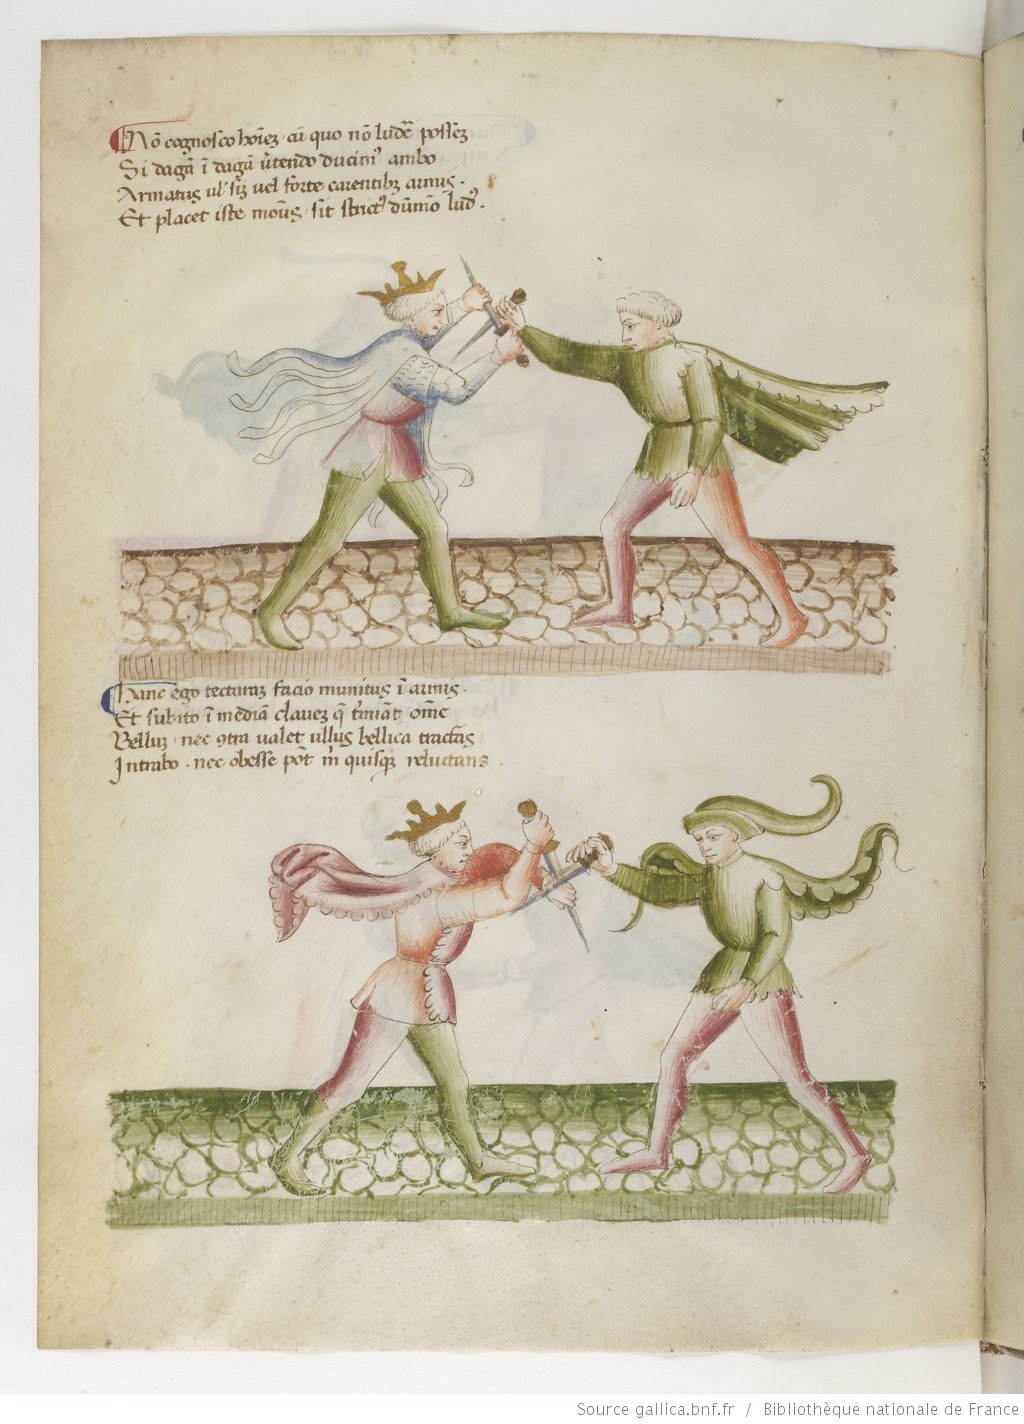 Nō cognosco hoīeȝ cū quo nō ludē possēȝ
Si dagā ī dagā ūtendo ducim⁹ ambo
Armatus ul' siȝ uel forte carentibȝ armis.
Et placet iste mou̅s sit strict⁹ dūmō lud⁹.
Hanc ego tecturaȝ facio munitus ī armis.
Et subito ī mediā claueȝ q̄ t̄minat om̄e
Belluȝ. nec ꝯtra ualet ullus bellica tractās
Intrabo. nec obesse pōt m̄ quisqȝ reluctans.
Source gallica.bnf.fr / Bibliothèque nationale de France